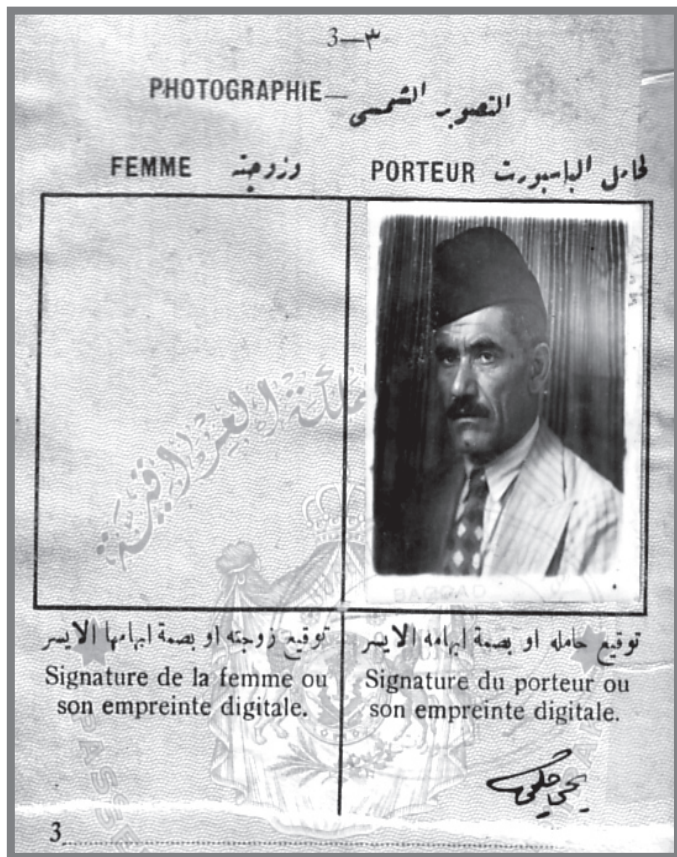 3—٣
PHOTOGRAPHIE— التصوير الشمسي
FEMME وزوجته
PORTEUR لحامل الباسبورت
المملكة العراقية
BAGDAD
توقيع زوجته او بصمة ابهامها الايسر
Signature de la femme ou
son empreinte digitale.
توقيع حامله او بصمة ابهامه الايسر
Signature du porteur ou
son empreinte digitale.
3